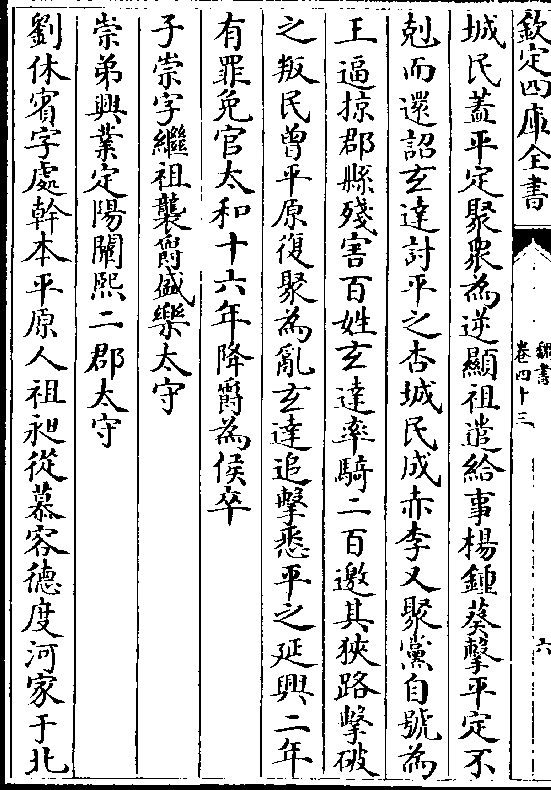 欽定四庫全書
魏書
卷四十三
六
城民蓋平定聚衆為逆顯祖遣給事楊鍾葵擊平定不
剋而還詔玄達討平之杏城民成赤李又聚黨自號為
王逼掠郡縣殘害百姓玄達率騎二百邀其狹路擊破
之叛民曾平原復聚為亂玄達追擊悉平之延興二年
有罪免官太和十六年降爵為侯卒
子崇字繼祖襲爵盛樂太守
崇弟興業定陽闡熙二郡太守
劉休賓字處幹本平原人祖昶從慕容德度河家于北